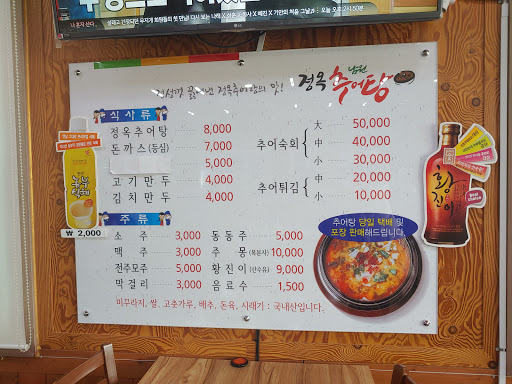 나 혼자 산다
정성껏 끓여낸 정옥추어탕의 맛!
남원
정옥 추어탕
식사류
정옥추어탕 8,000
돈까스(등심) 7,000
5,000
고기만두 4,000
김치만두 4,000
추어숙회
大 50,000
中 40,000
小 30,000
추어튀김
中 20,000
小 10,000
₩ 2,000
주류
소주 3,000
맥주 3,000
전주모주 5,000
막걸리 3,000
동동주 5,000
주몽(복분자) 10,000
황진이(산수유) 9,000
음료수 1,500
추어탕 당일 택배 및
포장 판매해드립니다.
황진이
미꾸라지, 쌀, 고춧가루, 배추, 돈육, 시래기 : 국내산입니다.